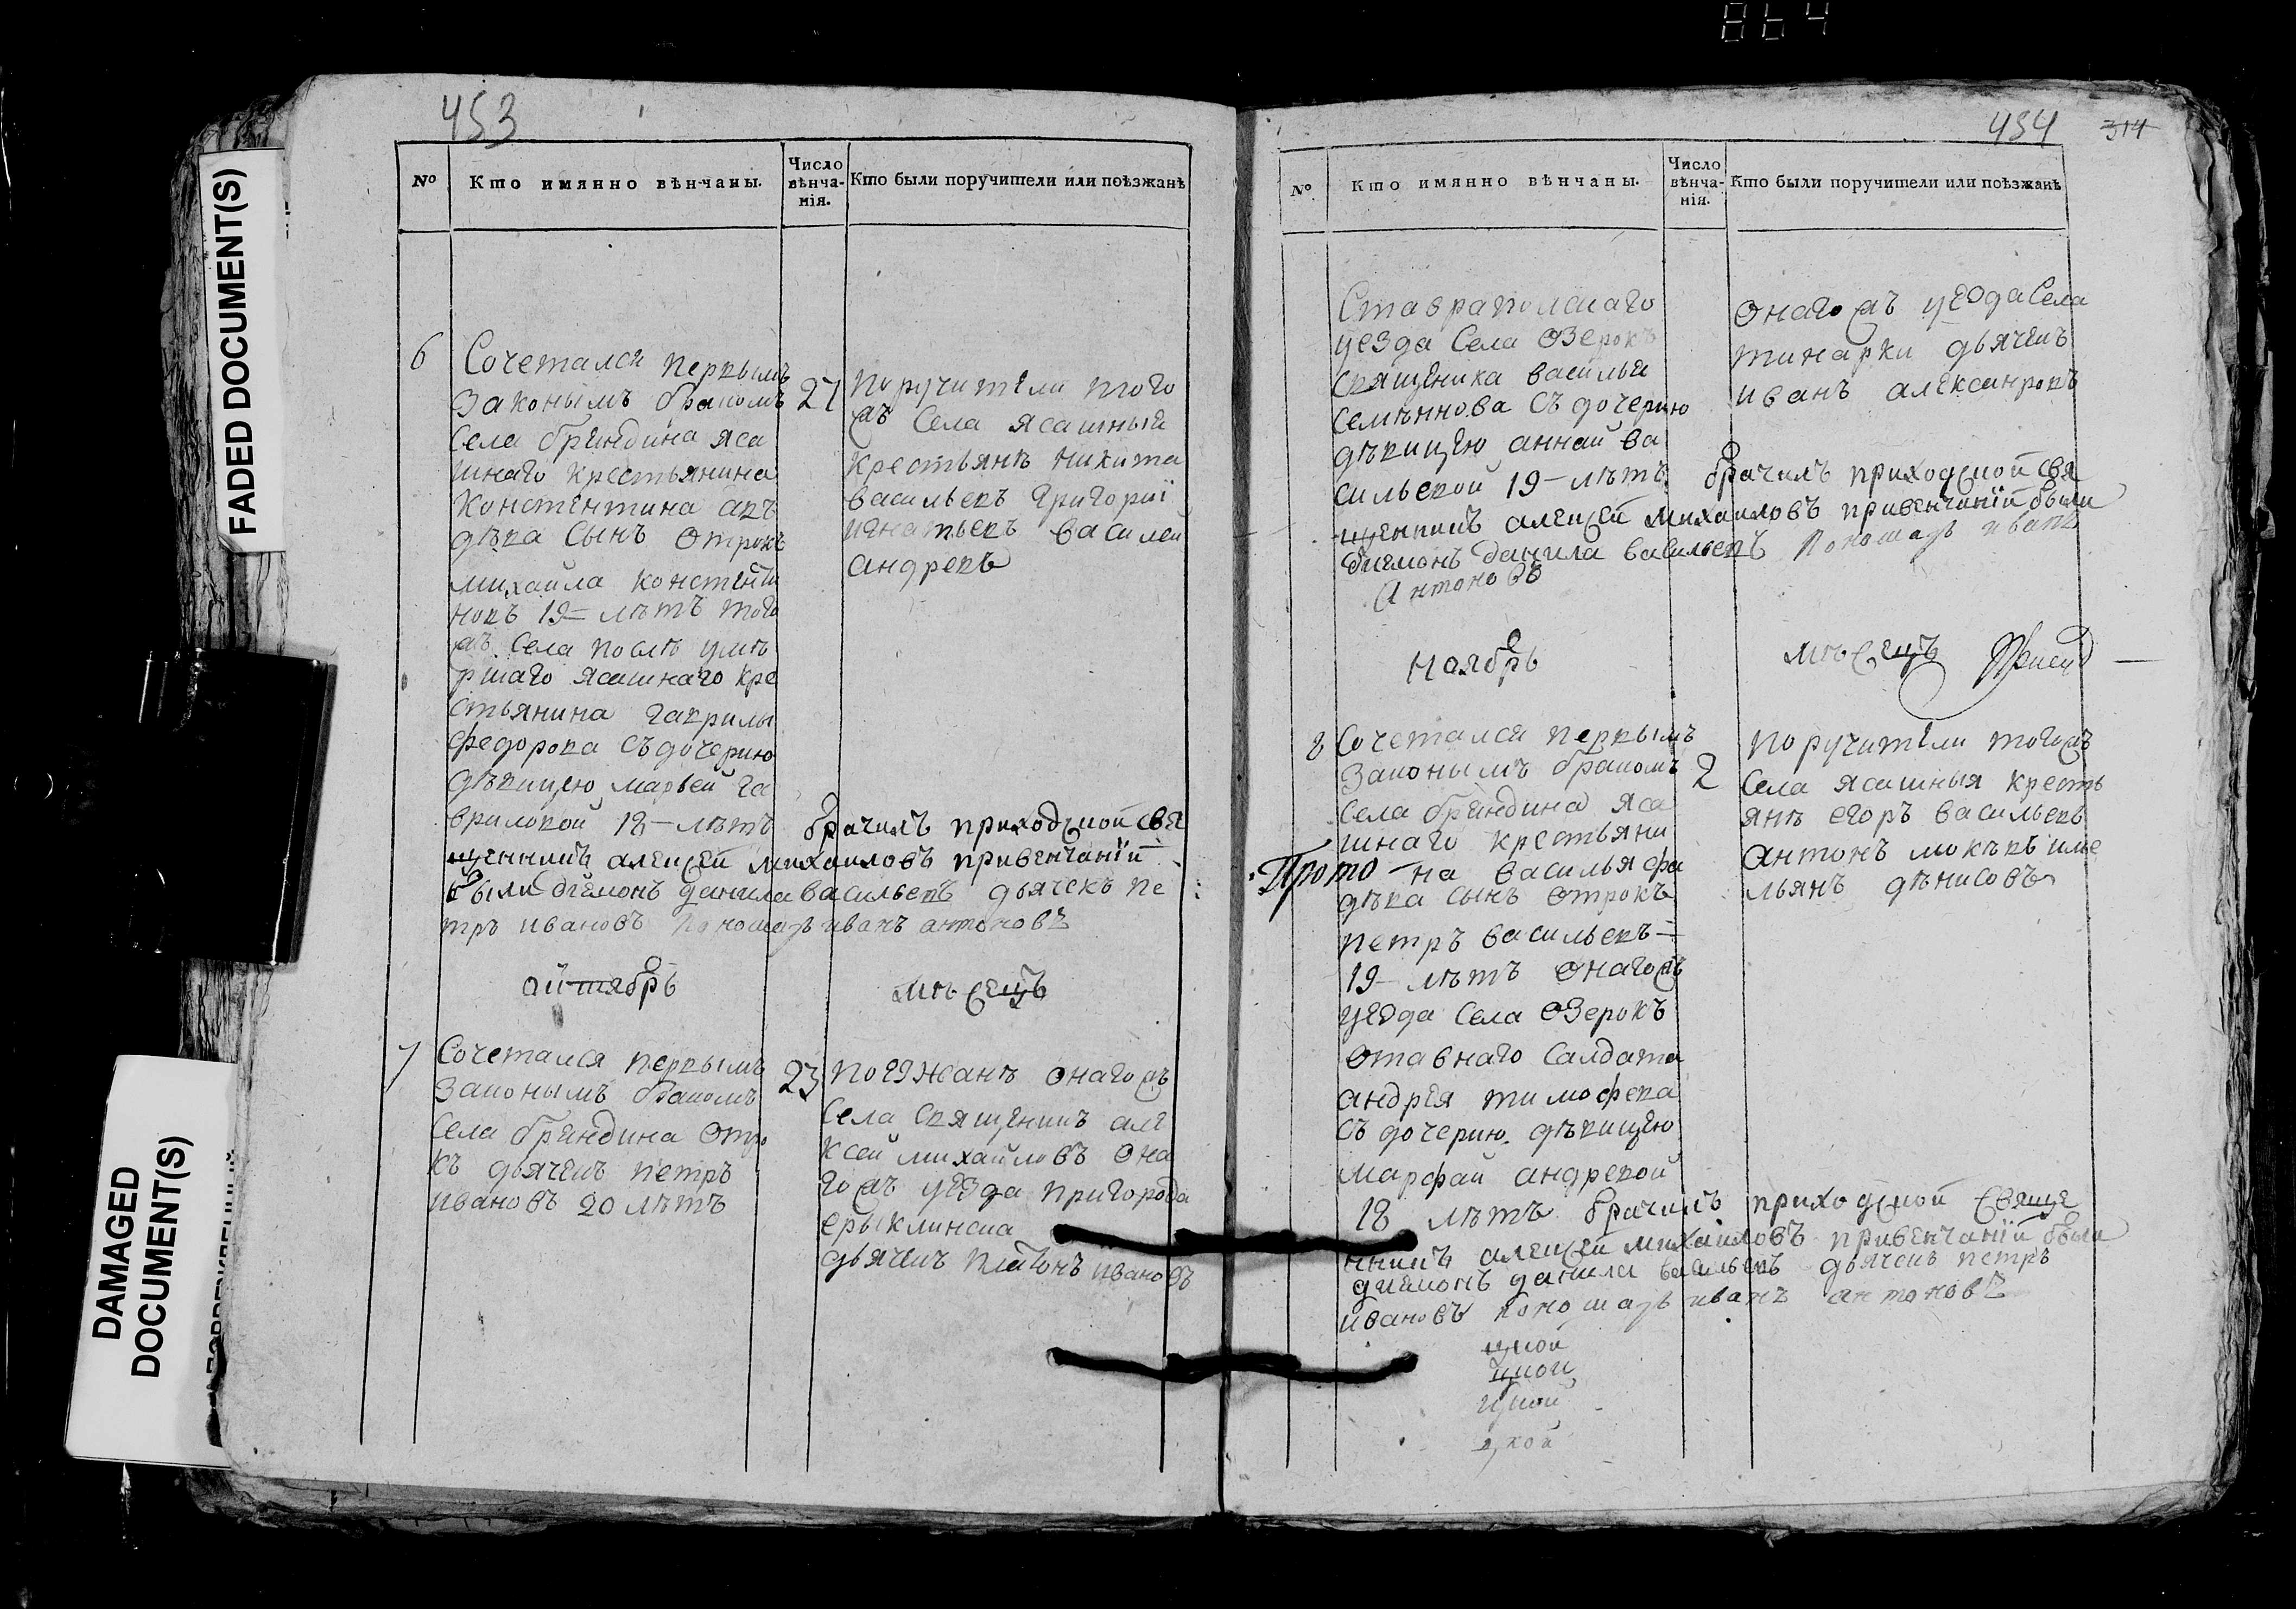 864
FADED DOCUMENT(S)
DAMAGED
DOCUMENT(S)
453
№
Кто имянно вѣнчаны.
Число
вѣнча-
нія.
Кто были поручители или поѣзжанѣ
6
Сочетался первымъ
законымъ бракомъ
села брендина яса
шнаго крестьянина
Констентина авъ
дѣва сынъ отрокъ
михаила констенти
новъ 19 – лѣтъ того
жъ села послѣ уме
ршаго ясашнаго кре
стьянина гаврилы
федорова съ дочерию
дѣвицею марьей га
вриловой 18 – лѣтъ
27
поручители того
жъ села ясашныя
крестьянѣ никита
васильевъ григориї
игнатьевъ василей
андревъ
брачилъ приходской свя
щенникъ алексей михаиловъ привенчаниї
были диаконъ данила васильевъ дьячекъ пе
тръ ивановъ пономарь иванъ антоновъ
октябрь
мѣсецъ
7
Сочетался первымъ
законымъ бракомъ
села брендина отро
къ дьячекъ петръ
ивановъ 20 лѣтъ
23
поезжанѣ онагожъ
села священикъ але
ксей михайловъ она
гожъ уезда пригорода
ерыклинска
дьячекъ платонъ ивановъ
454
314
№
Кто имянно вѣнчаны.
Число
вѣнча-
нія.
Кто были поручители или поѣзжанѣ
Ставрапольскаго
уезда села озерокъ
священика василья
семѣнова съ дочерию
дѣвицею аннай ва
сильевой 19 – лѣтъ
онагожъ уезда села
тинарки дьячекъ
иванъ александровъ
брачилъ приходской свя
щенникъ алексей михаиловъ привенчаниї были
диаконъ данила васильевъ пономарь иванъ
антоновъ
ноябрь
мѣсецъ
8
Сочетался первымъ
законымъ бракомъ
села брендина яса
шнаго крестьяни
Прото
на василья фа
дѣва сынъ отрокъ
петръ васильевъ –
19 – лѣтъ онагожъ
уезда села озерокъ
отавнаго салдата
андрея тимофева
съ дочерию дѣвицею
марфай андревой
18 лѣтъ
2
поручители тогожъ
села ясашныя кресть
янѣ егоръ васильевъ
антонъ мокѣвъ име
льянъ дѣнисовъ
брачилъ приходской свяще
нникъ алексей михаиловъ привенчаниї были
диаконъ данила васильевъ дьячекъ петръ
ивановъ пономарь иванъ антоновъ